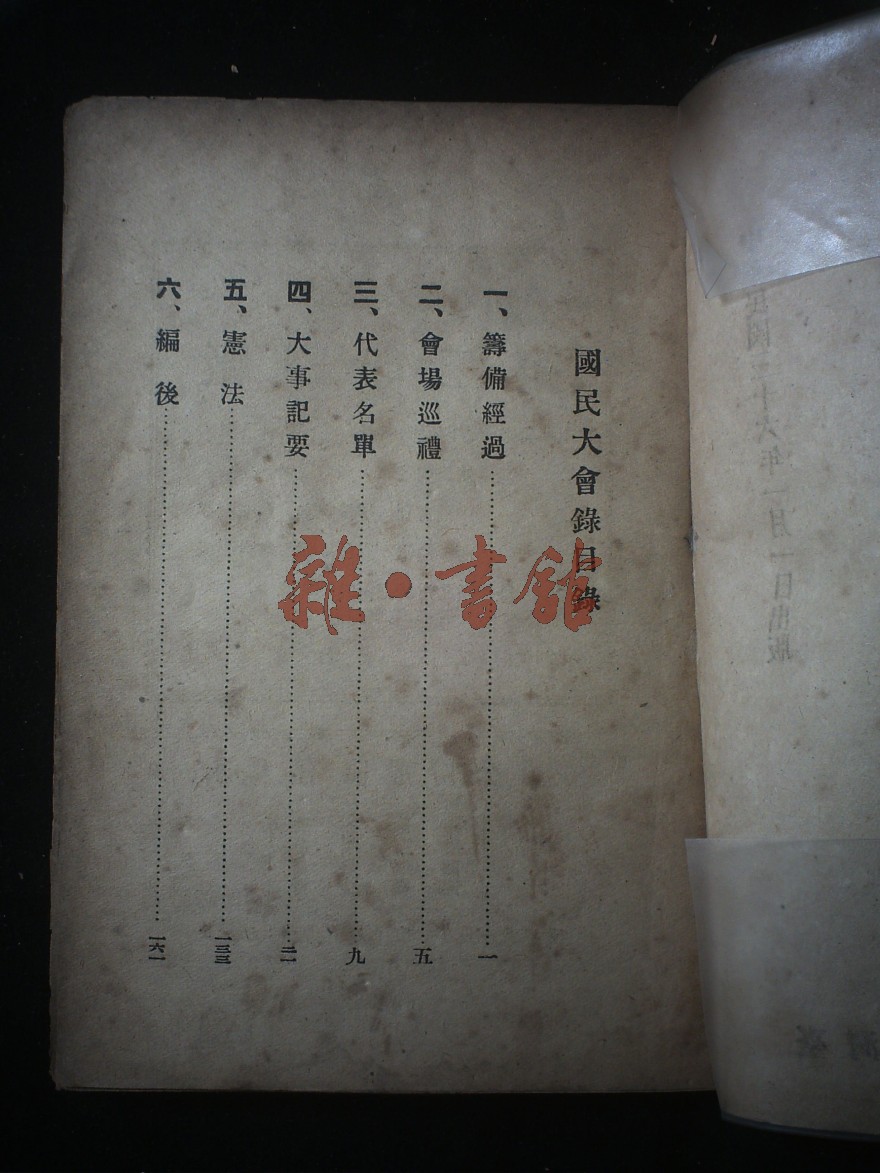 國民大會錄目錄
一、籌備經過……一
二、會場巡禮……五
三、代表名單……九
四、大事記要……二一
五、憲法……一三三
六、編後……一六一
雜·書館